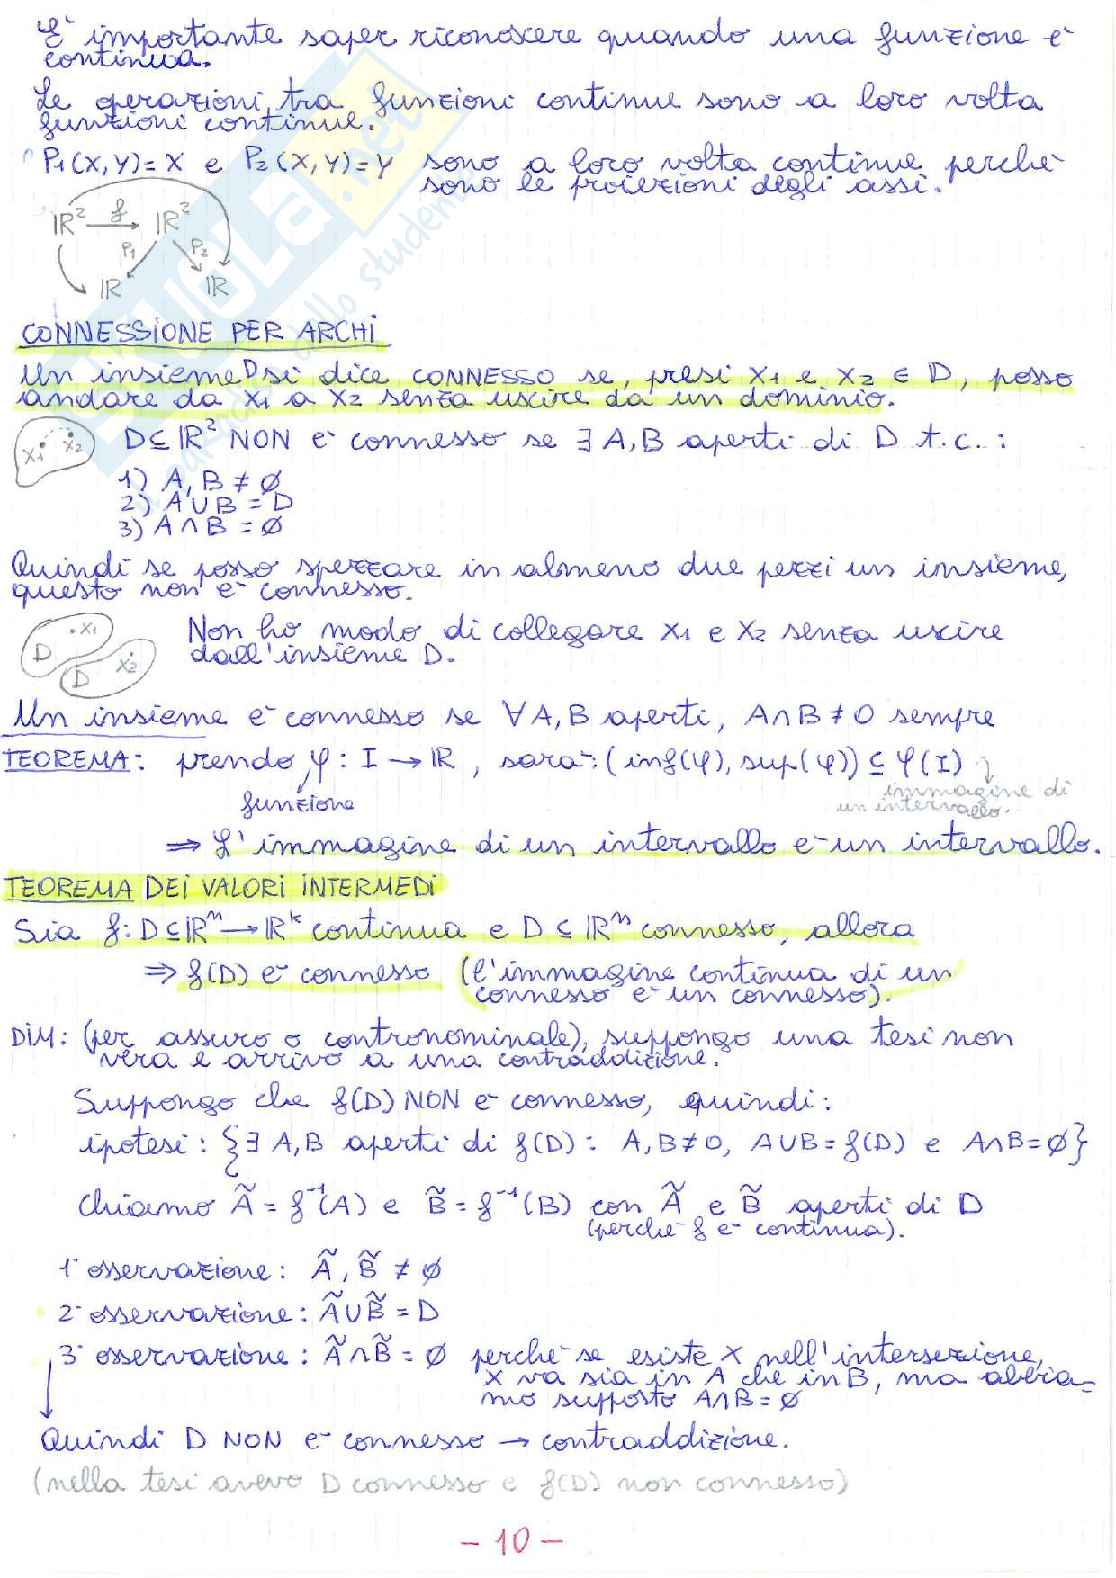 E' importante saper riconoscere quando una funzione è
continua.
Le operazioni tra funzioni continue sono a loro volta
funzioni continue.
P1(X,Y)=X e P2(X,Y)=Y sono a loro volta continue perchè
sono le proiezioni degli assi.
ℝ² f ℝ²
P1 P2
ℝ ℝ
CONNESSIONE PER ARCHI
Un insieme D si dice CONNESSO se, presi X1 e X2 ∈ D, posso
andare da X1 a X2 senza uscire da un dominio.
X1 X2 D⊆ℝ² NON è connesso se ∃ A,B aperti di D t.c.:
1) A, B ≠ ∅
2) A∪B = D
3) A∩B = ∅
Quindi se posso spezzare in almeno due pezzi un insieme,
questo non è connesso.
X1 D X2 D Non ho modo di collegare X1 e X2 senza uscire
dall'insieme D.
Un insieme è connesso se ∀A,B aperti, A∩B≠0 sempre
TEOREMA: prendo φ: I→ℝ, sarà: (inf(φ), sup(φ)) ⊆ φ(I)
funzione immagine di
un intervallo.
⇒ L'immagine di un intervallo è un intervallo.
TEOREMA DEI VALORI INTERMEDI
Sia f: D⊆ℝⁿ→ℝᵏ continua e D⊆ℝⁿ connesso, allora
⇒ f(D) è connesso (l'immagine continua di un
connesso è un connesso).
DIM: (per assuro o contronominale), suppongo una tesi non
vera e arrivo a una contraddizione.
Suppongo che f(D) NON è connesso, quindi:
ipotesi: {∃ A,B aperti di f(D): A,B≠0, A∪B=f(D) e A∩B=∅}
chiamo Ã = f⁻¹(A) e B̃ = f⁻¹(B) con Ã e B̃ aperti di D
(perchè f è continua).
1ª osservazione: Ã, B̃ ≠ ∅
2ª osservazione: Ã∪B̃ = D
3ª osservazione: Ã∩B̃ = ∅ perchè se esiste x nell'intersezione,
x va sia in A che in B, ma abbia=
mo supposto A∩B=∅
Quindi D NON è connesso → contraddizione.
(nella tesi avevo D connesso e f(D) non connesso)
- 10 -